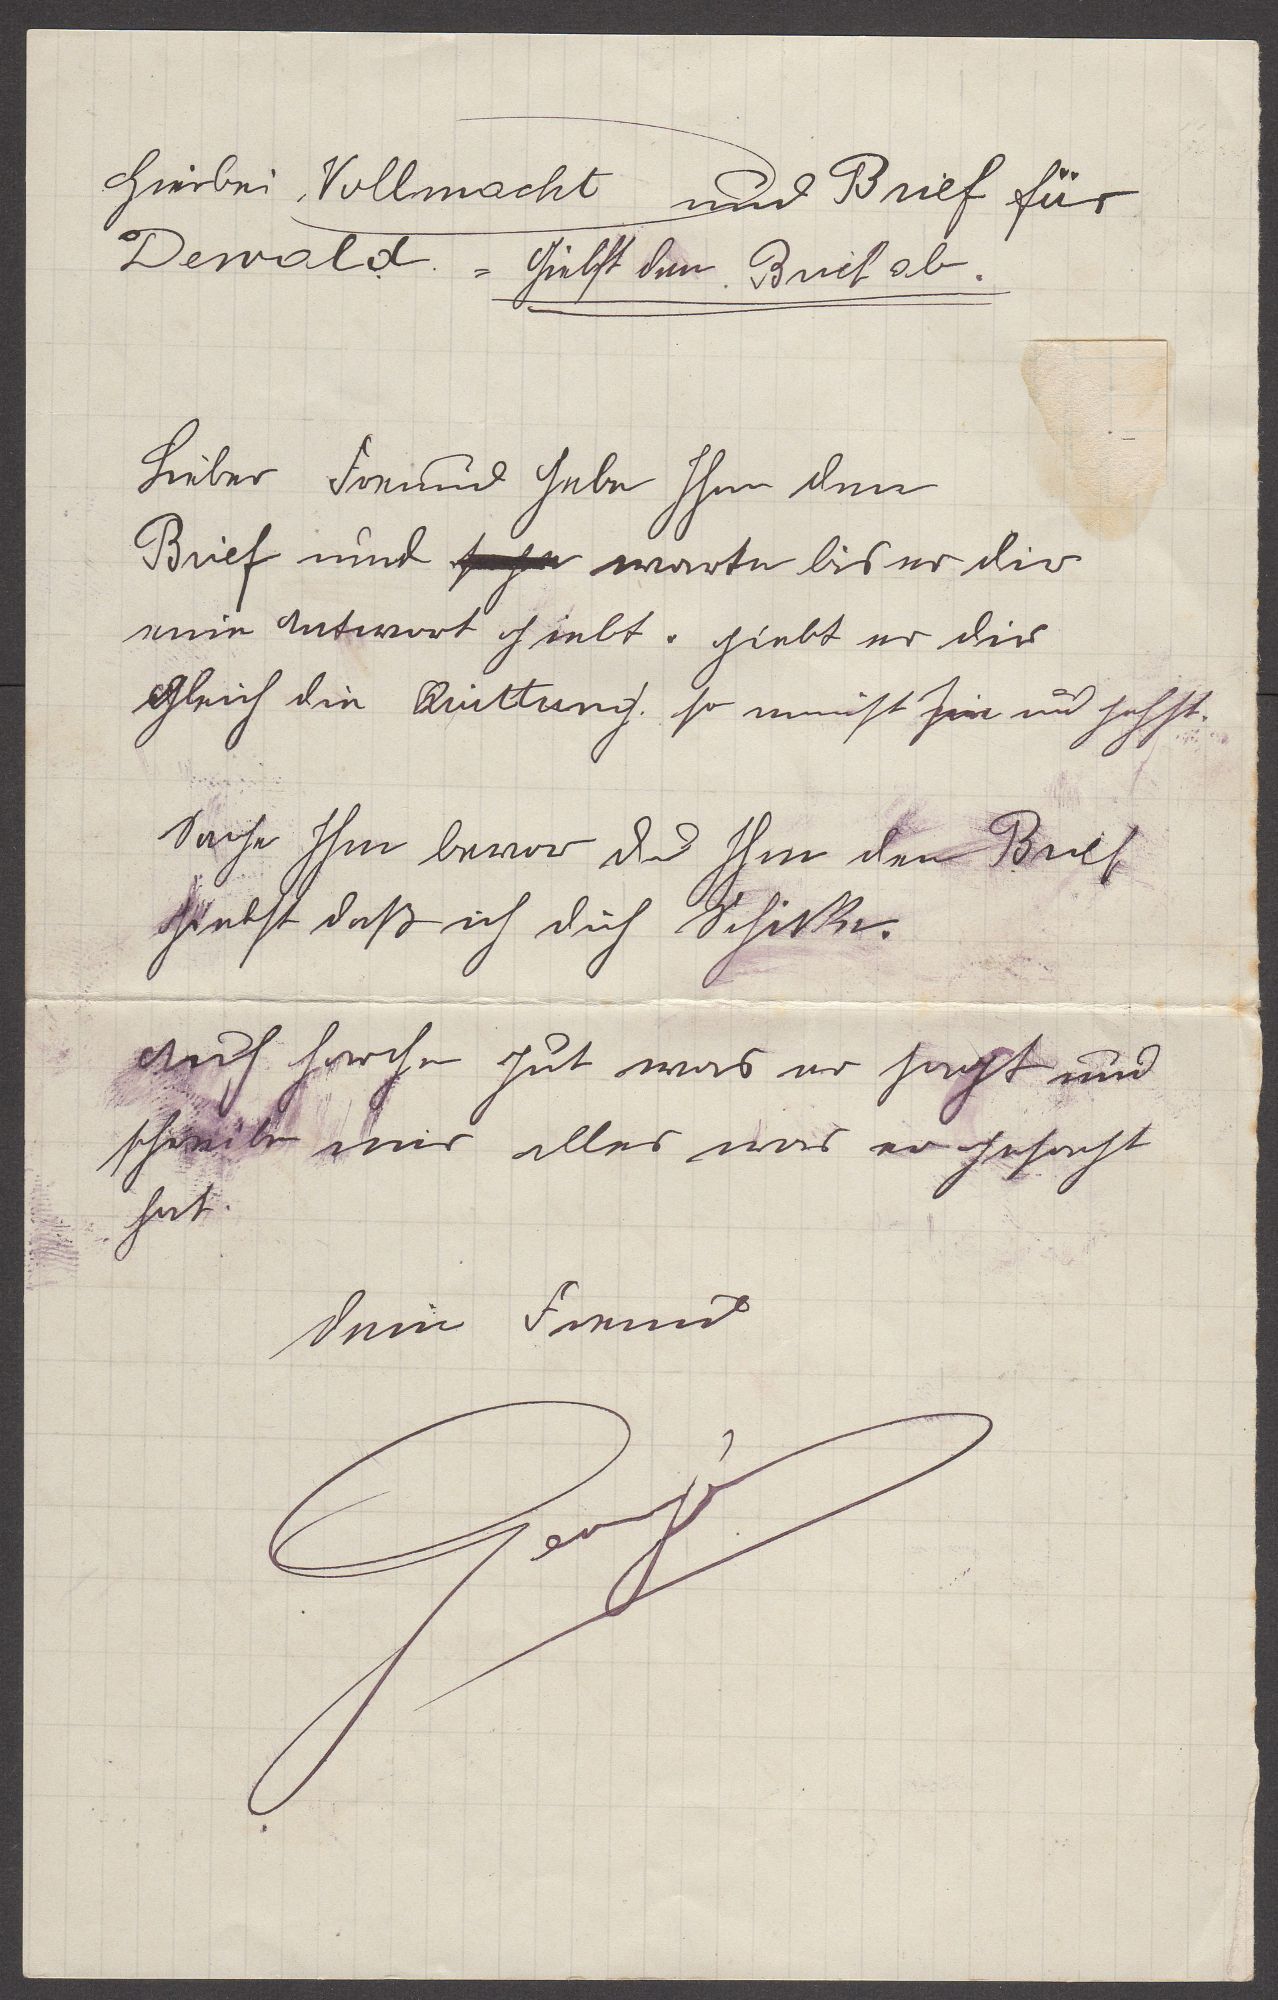 Hierbei Vollmacht und Brief für
Dewald. = Giebst den Brief ab.
Lieber Freund Gebe Ihm den
Brief und warte bis er dir
eine Antwort giebt. giebt er dir
gleich die Quittung. so nimst sie und gehst.
Sage Ihm bevor du Ihm den Brief
giebst daß ich dich Schikke.
Auch horche gut was er sagt und
schreibe mir alles was er gesagt
hat.
Dein Freund
Georg